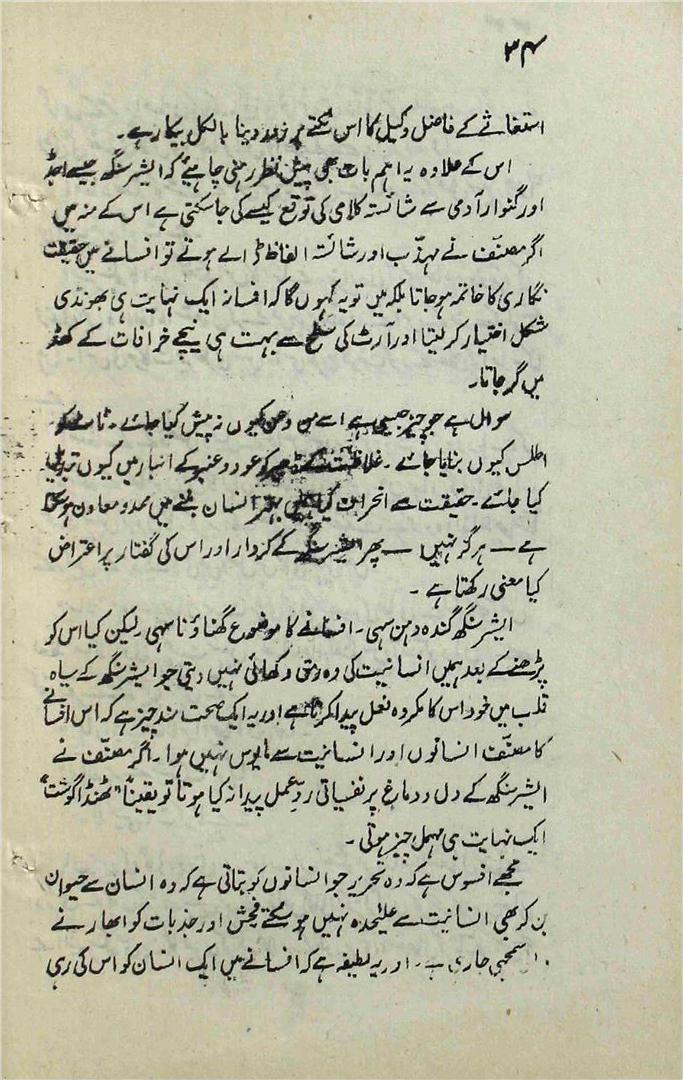 ۳۴
استغاثے کے فاضل وکیل کا اس نکتے پر زور دینا بالکل بیکار ہے۔
اس کے علاوہ یہ اہم بات بھی پیش نظر رہنی چاہیئے کہ ایشر سنگھ جیسے اجڈ
اور گنوار آدمی سے شائستہ کلامی کی توقع کیسے کی جا سکتی ہے اس کے منہ میں
اگر مصنّف نے مہذّب اور شائستہ الفاظ ڈالے ہوتے تو افسانے میں حقیقت
نگاری کا خاتمہ ہو جاتا بلکہ میں تو یہ کہوں گا کہ افسانہ ایک نہایت ہی بھونڈی
شکل اختیار کر لیتا اور آرٹ کی سطح سے بہت ہی نیچے خرافات کے کھڈ
میں گر جاتا۔
سوال ہے جو چیز جیسی ہے اسے من و عن کیوں نہ پیش کیا جائے۔ ٹاٹ کو
اطلس کیوں بنایا جائے۔ غلاظت کے ڈھیر کو عود و عنبر کے انبار میں کیوں تبدیل
کیا جائے۔ حقیقت سے انحراف کیا ہمیں بہتر انسان بننے میں ممد و معاون ہو سکتا
ہے — ہرگز نہیں — پھر ایشر سنگھ کے کردار اور اس کی گفتار پر اعتراض
کیا معنی رکھتا ہے۔
ایشر سنگھ گندہ دہن سہی۔ افسانے کا موضوع گھناؤنا سہی۔ لیکن کیا اس کو
پڑھنے کے بعد ہمیں انسانیت کی وہ رمق دکھائی نہیں دیتی جو ایشر سنگھ کے سیاہ
قلب میں خود اس کا مکروہ فعل پیدا کرتا ہے اور یہ ایک صحت مند چیز ہے کہ اس افسانے
کا مصنّف انسانوں اور انسانیت سے مایوس نہیں ہوا۔ اگر مصنّف نے
ایشر سنگھ کے دل و دماغ پر نفسیاتی ردِعمل پیدا نہ کیا ہوتا تو یقیناً "ٹھنڈا گوشت"
ایک نہایت ہی مہمل چیز ہوتی۔
مجھے افسوس ہے کہ وہ تحریر جو انسانوں کو بتاتی ہے کہ وہ انسان سے حیوان
بن کر بھی انسانیت سے علیٰحدہ نہیں ہو سکتے فحش اور جذبات کو ابھارنے
سمجھی جا رہی ہے۔ اور یہ لطیفہ ہے کہ افسانے میں ایک انسان کو اس کی رہی